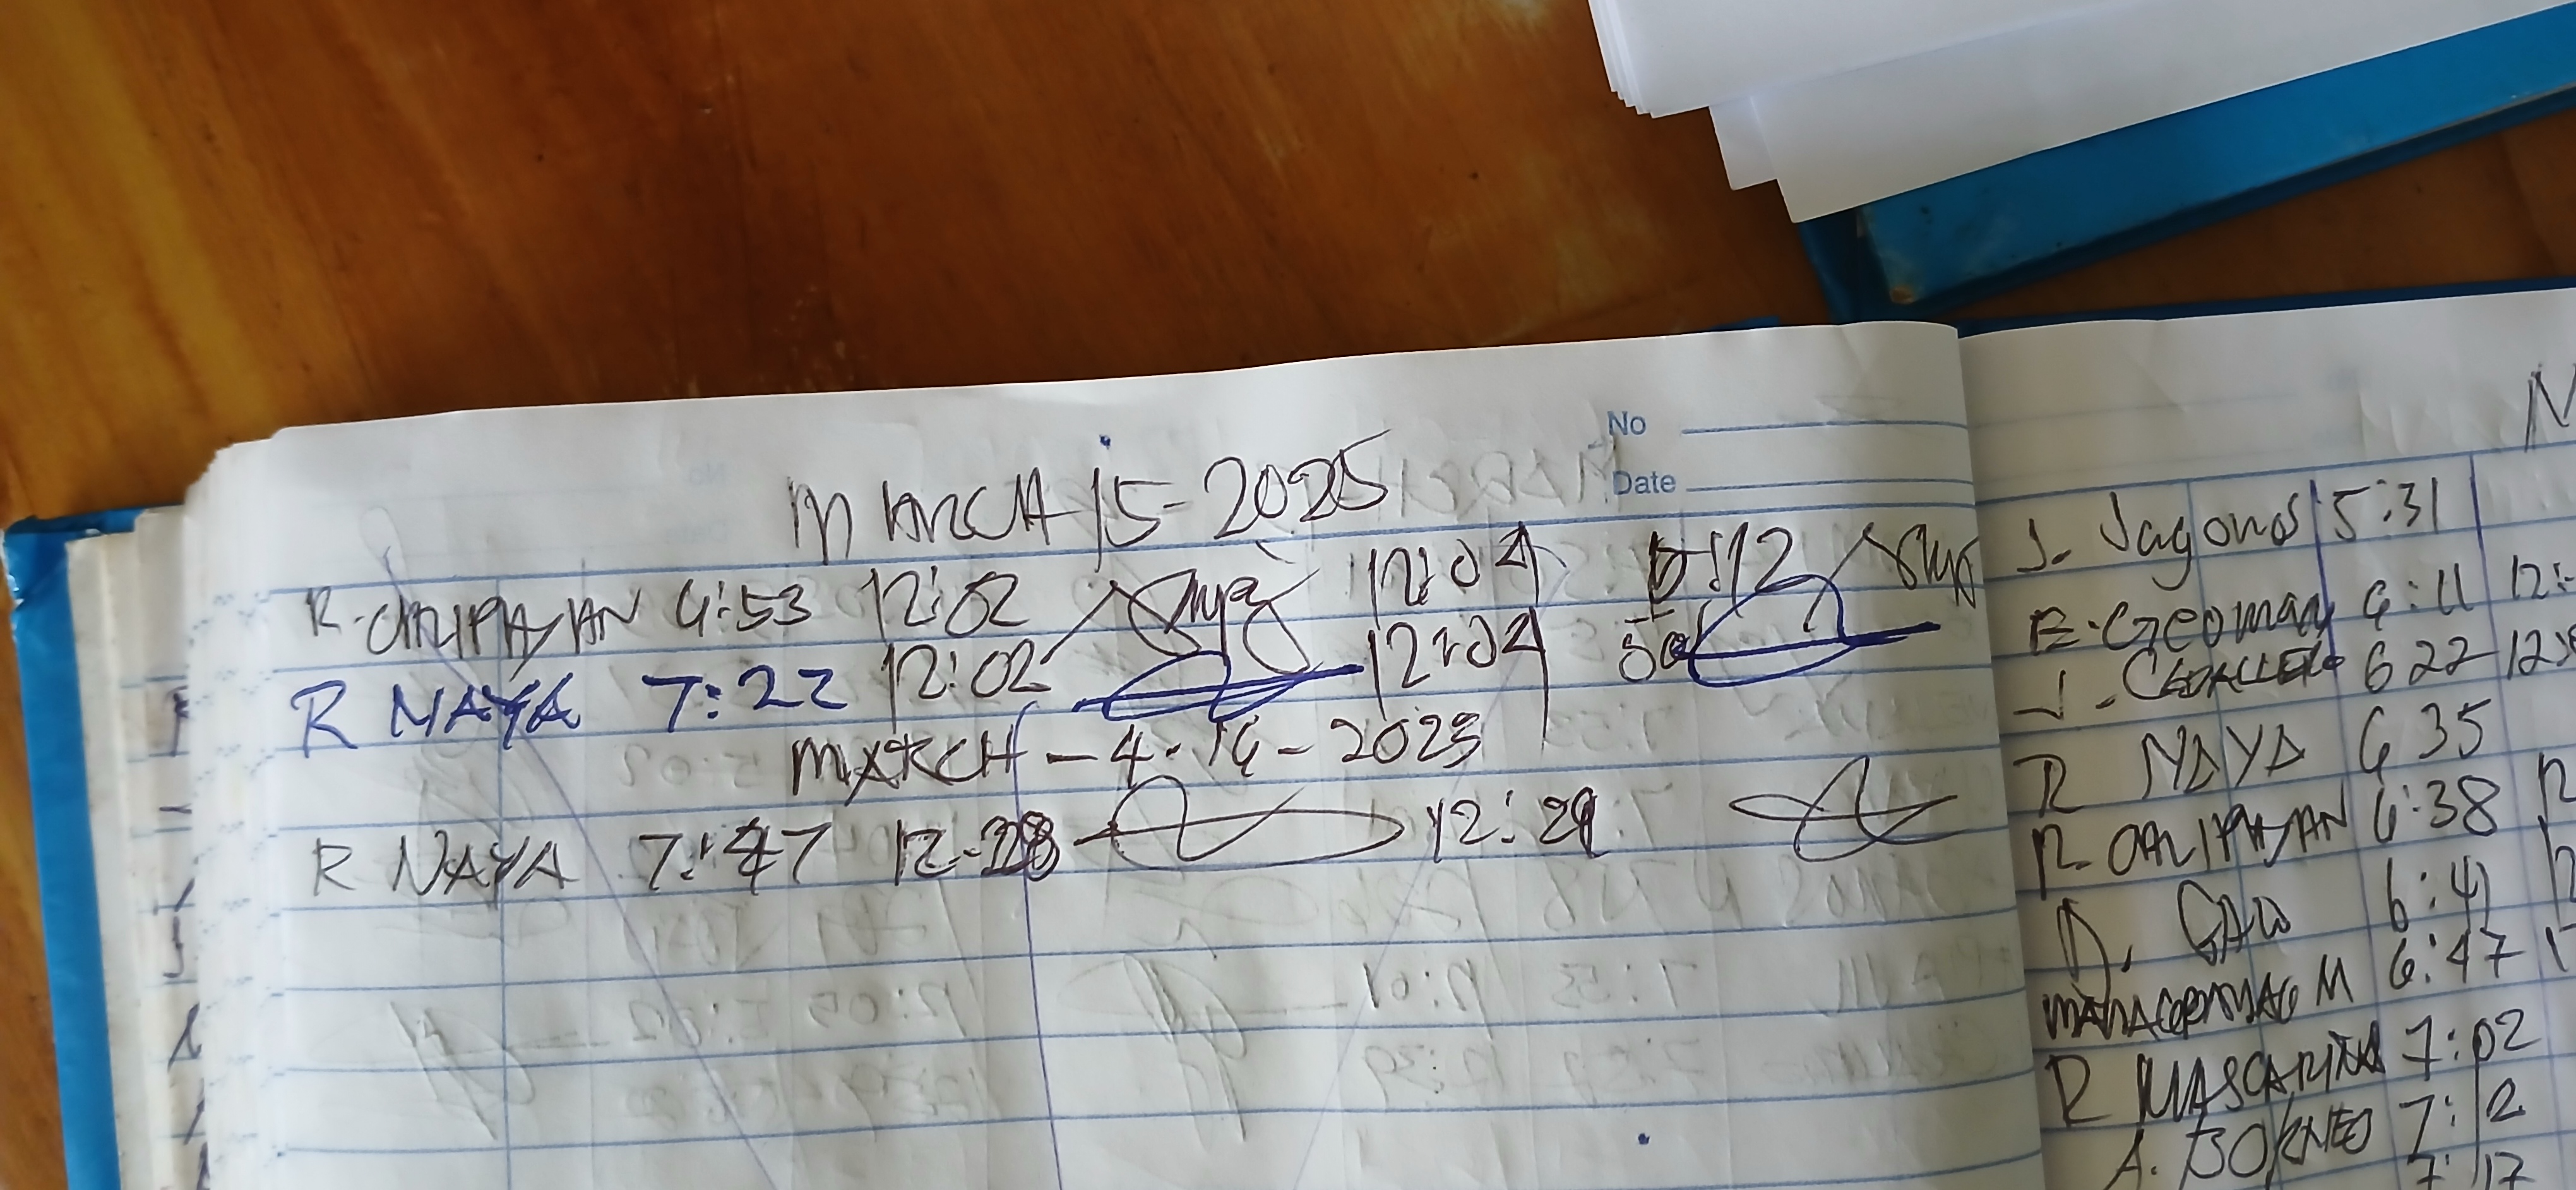 No
Date
MARCH 15-2025
R. CALIPAYAN 6:53 12:02 12:04 5:12
R NAYA 7:22 12:02 12:04
MARCH - 4. 16 - 2025
R NAYA 7:47 12-28 12:29
J. Jagonos 5:31
E. Geoman 6:11 12:
J. 6 22 12
R NAYA 6 35
R. CALIPAYAN 6:38
D. GAW 6:41
M 6:47
R MASCARINA 7:02
A. BORNEO 7:12
7:17